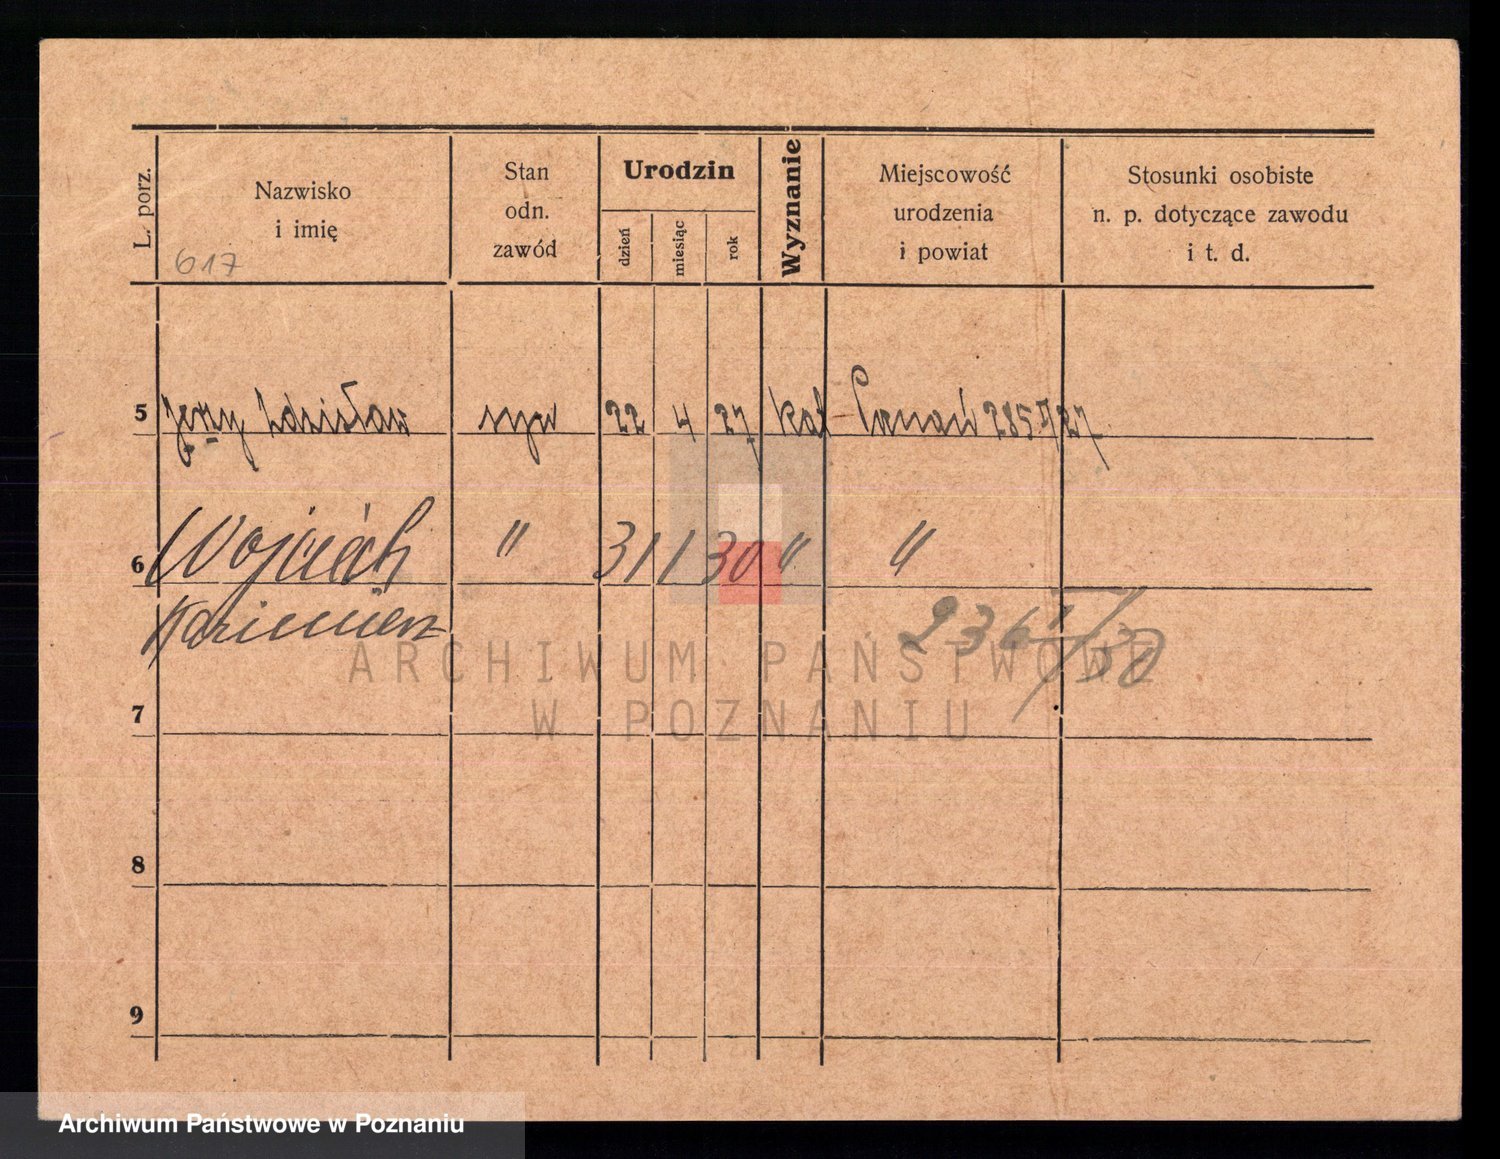 L. porz.
Nazwisko
i imię
617
Stan
odn.
zawód
Urodzin
dzień
miesiąc
rok
Wyznanie
Miejscowość
urodzenia
i powiat
Stosunki osobiste
n. p. dotyczące zawodu
i t. d.
5 Jerzy Zdzisław syn 22 4 27 kat Poznań 285 /27
6 Wojciech " 31 1 30 " "
Kazimierz 236 /30
7
8
9
ARCHIWUM PAŃSTWOWE
W POZNANIU
Archiwum Państwowe w Poznaniu